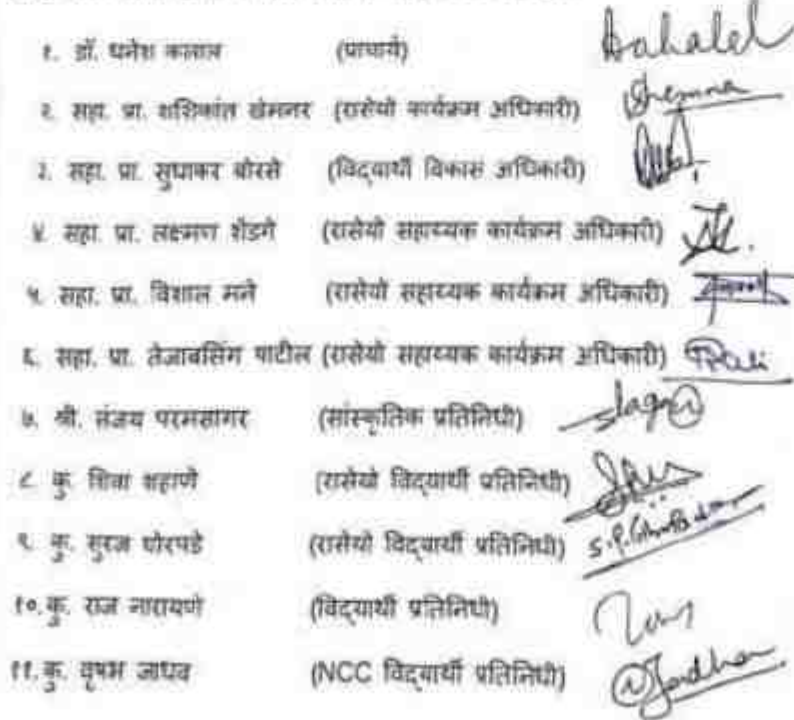 १. डॉ. धनेश कलाल (प्राचार्य)
२. सहा. प्रा. शशिकांत खेमनर (रासेयो कार्यक्रम अधिकारी)
३. सहा. प्रा. सुधाकर बोरसे (विद्यार्थी विकास अधिकारी)
४. सहा. प्रा. लक्ष्मण शेडगे (रासेयो सहाय्यक कार्यक्रम अधिकारी)
५. सहा. प्रा. विशाल मने (रासेयो सहाय्यक कार्यक्रम अधिकारी)
६. सहा. प्रा. तेजाबसिंग पाटील (रासेयो सहाय्यक कार्यक्रम अधिकारी)
७. श्री. संजय परमसागर (सांस्कृतिक प्रतिनिधी)
८ कु. शिवा शहाणे (रासेयो विद्यार्थी प्रतिनिधी)
९ कु. सुरज घोरपडे (रासेयो विद्यार्थी प्रतिनिधी)
१०. कु. राज नारायणे (विद्यार्थी प्रतिनिधी)
११. कु. वृषभ जाधव (NCC विद्यार्थी प्रतिनिधी)